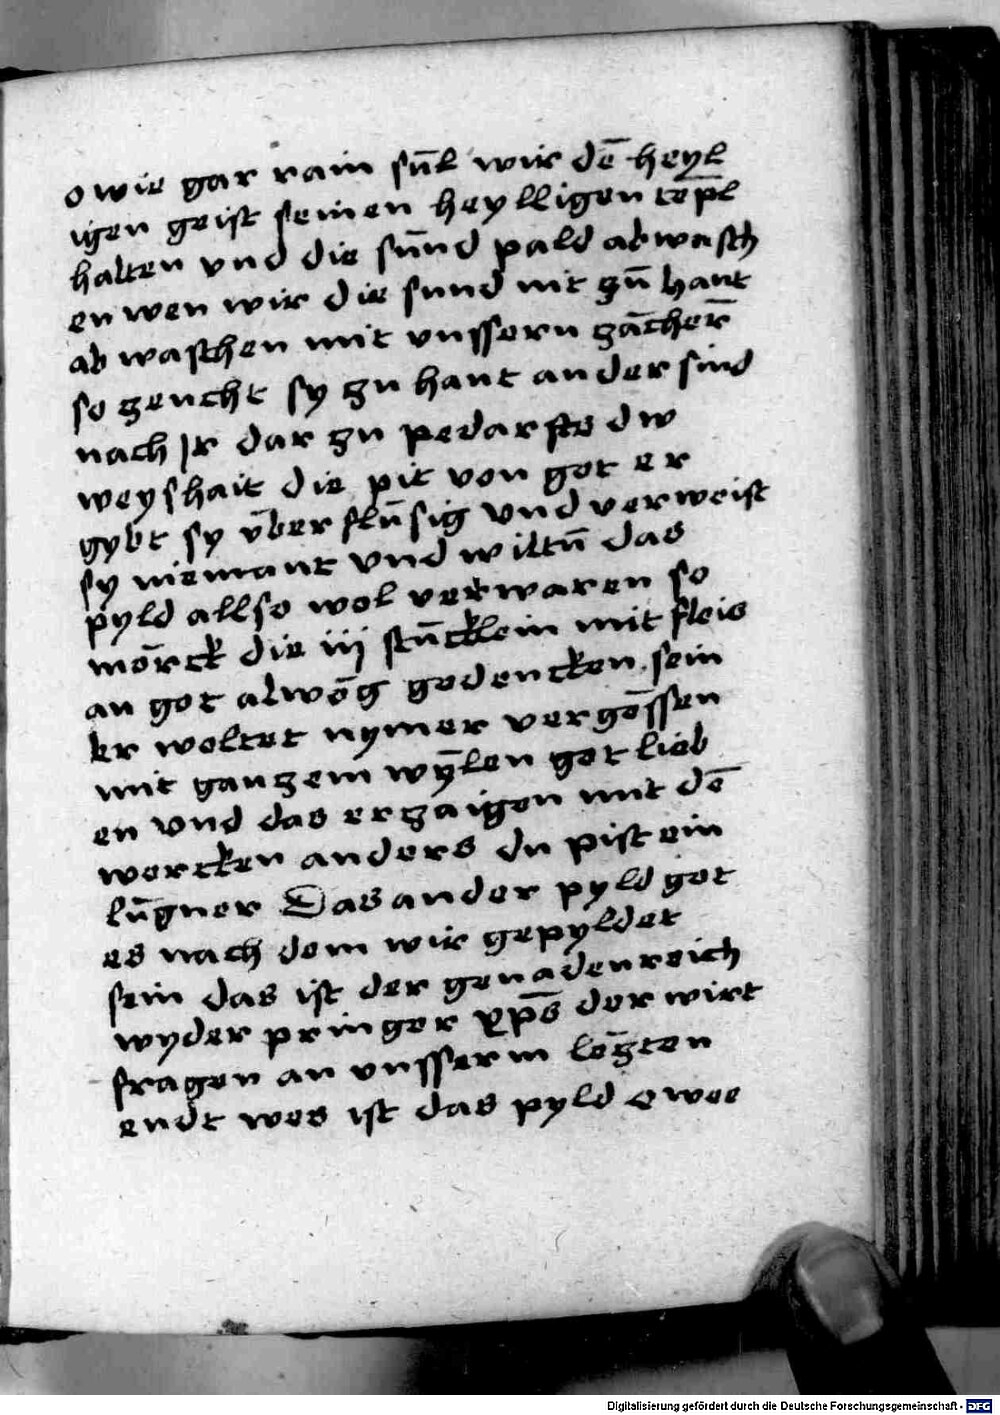 o wie gar rain sūl wir dē heyl
igen geist seinen heylligen tēpl
halten vnd die sūnd pald abwasch
en wen wir die sund nit zū hant
ab waschen mit vnssern zācher̄
so zeucht sy zu hant ander sünd
nach Jr dar zu pedarfts dw
weyshait die pit von got er
gybt sy v̄berflūsig vnd verweist
sy niemant vnd wiltū das
pyld allso wol verwaren so
mōrck die iij stūcklein mit fleis
an got alwōg gedencken sein
er woltet nymer vergōssen
mit ganzem wȳlen got lieb
en vnd das erzaigen mit dē
wercken anders du pist ein
lūgner Das ander pyld got
es nach dem wir gepyldet
sein das ist der genadenreich
wyder pringer xp̄s der wirt
fragen an vnsserm lēzten
endt wes ist das pyld O wee
Digitalisierung gefördert durch die Deutsche Forschungsgemeinschaft - DFG